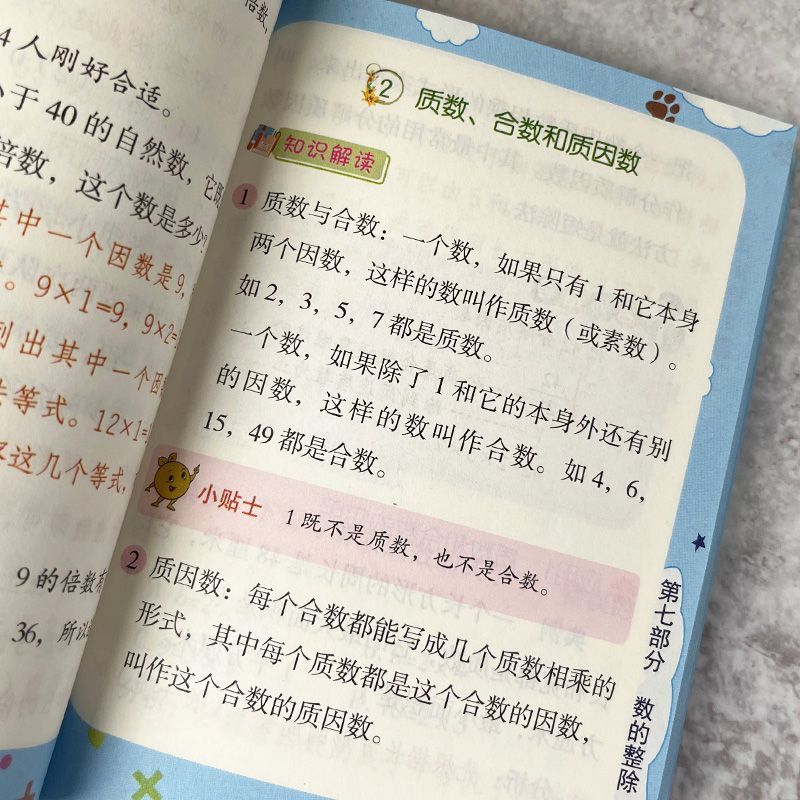 4 人刚好合适。
于 40 的自然数，它既
倍数，这个数是多少？
其中一个因数是 9，
。9×1=9，9×2=
列出其中一个因
法等式。12×1=
这几个等式，
9 的倍数有
36，所以
2 质数、合数和质因数
知识解读
1 质数与合数：一个数，如果只有 1 和它本身
两个因数，这样的数叫作质数（或素数）。
如 2，3，5，7 都是质数。
一个数，如果除了 1 和它的本身外还有别
的因数，这样的数叫作合数。如 4，6，
15，49 都是合数。
小贴士 1 既不是质数，也不是合数。
2 质因数：每个合数都能写成几个质数相乘的
形式，其中每个质数都是这个合数的因数，
叫作这个合数的质因数。
第七部分 数的整除